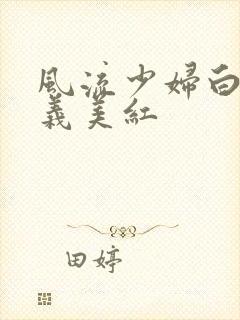 風流少婦白
義美紅
田婷